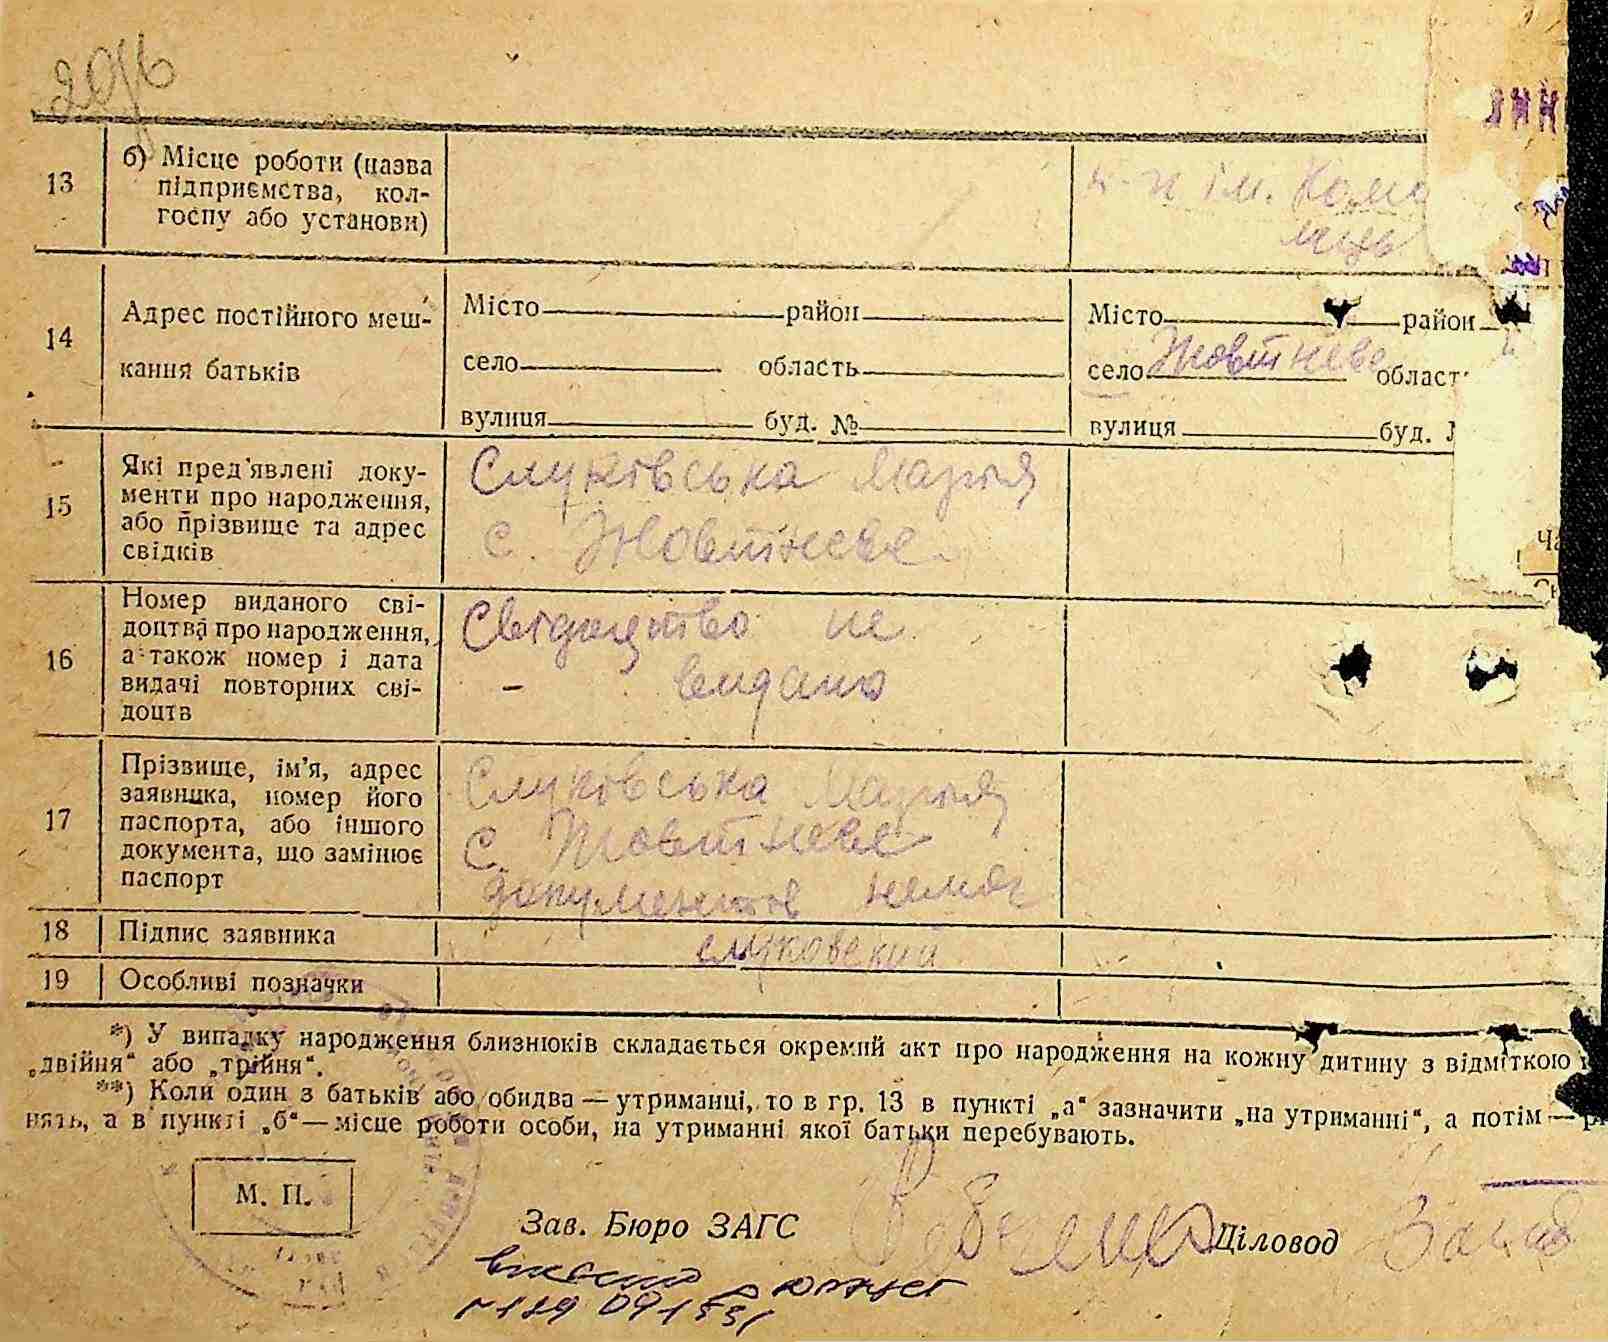 13
б) Місце роботи (назва
підприємства, кол-
госпу або установи)
к-п ім. Комо
лець
14
Адрес постійного меш-
кання батьків
Місто район
село область
вулиця буд. №
Місто район
село Жовтневе област
вулиця буд.
15
Які пред'явлені доку-
менти про народження,
або прізвище та адрес
свідків
Слуковська Марыя
с. Жовтневе
16
Номер виданого сві-
доцтва про народження,
а також номер і дата
видачі повторних сві-
доцтв
Свідоцтво не
- видано
17
Прізвище, ім'я, адрес
заявника, номер його
паспорта, або іншого
документа, що замінює
паспорт
Слуковська Марыя
с. Жовтневе
документов немає
18
Підпис заявника
слуковский
19
Особливі позначки
*) У випадку народження близнюків складається окремий акт про народження на кожну дитину з відміткою
„двійня“ або „трійня“.
**) Коли один з батьків або обидва — утриманці, то в гр. 13 в пункті „а“ зазначити „на утриманні“, а потім —
нять, а в пункті „б“ — місце роботи особи, на утриманні якої батьки перебувають.
М. П.
Зав. Бюро ЗАГС
Діловод